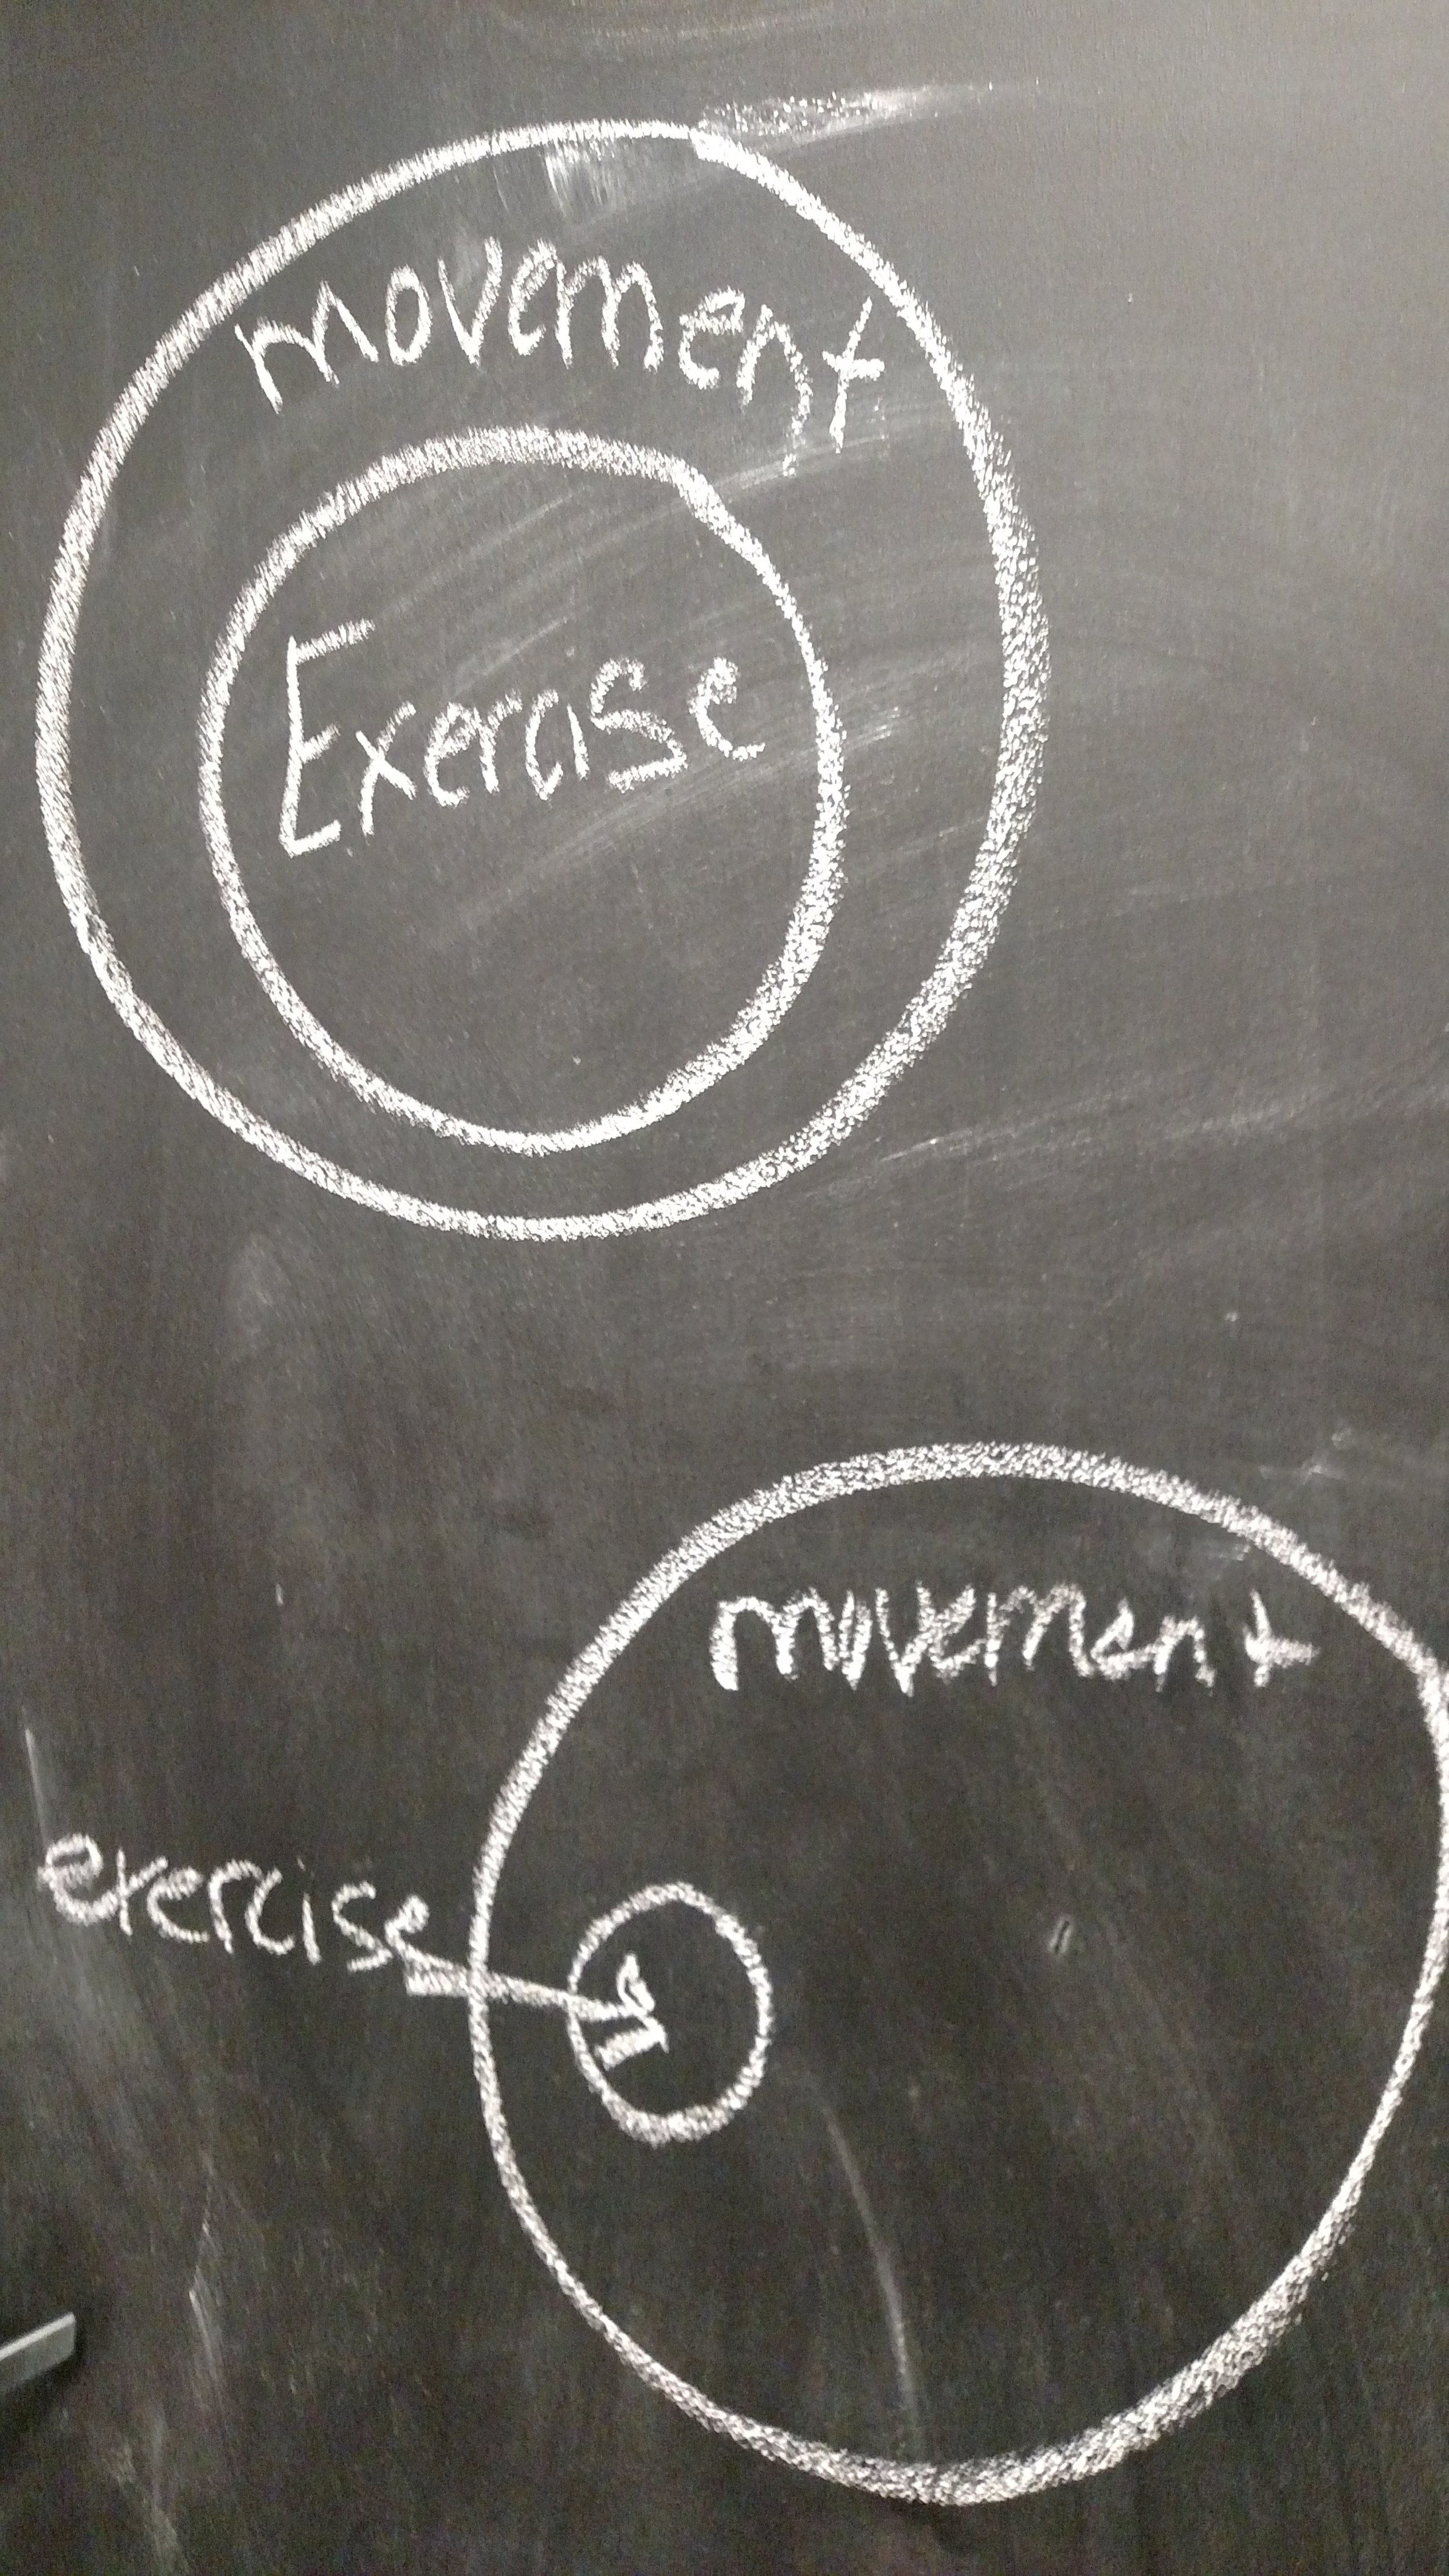 movement
Exercise
movement
exercise